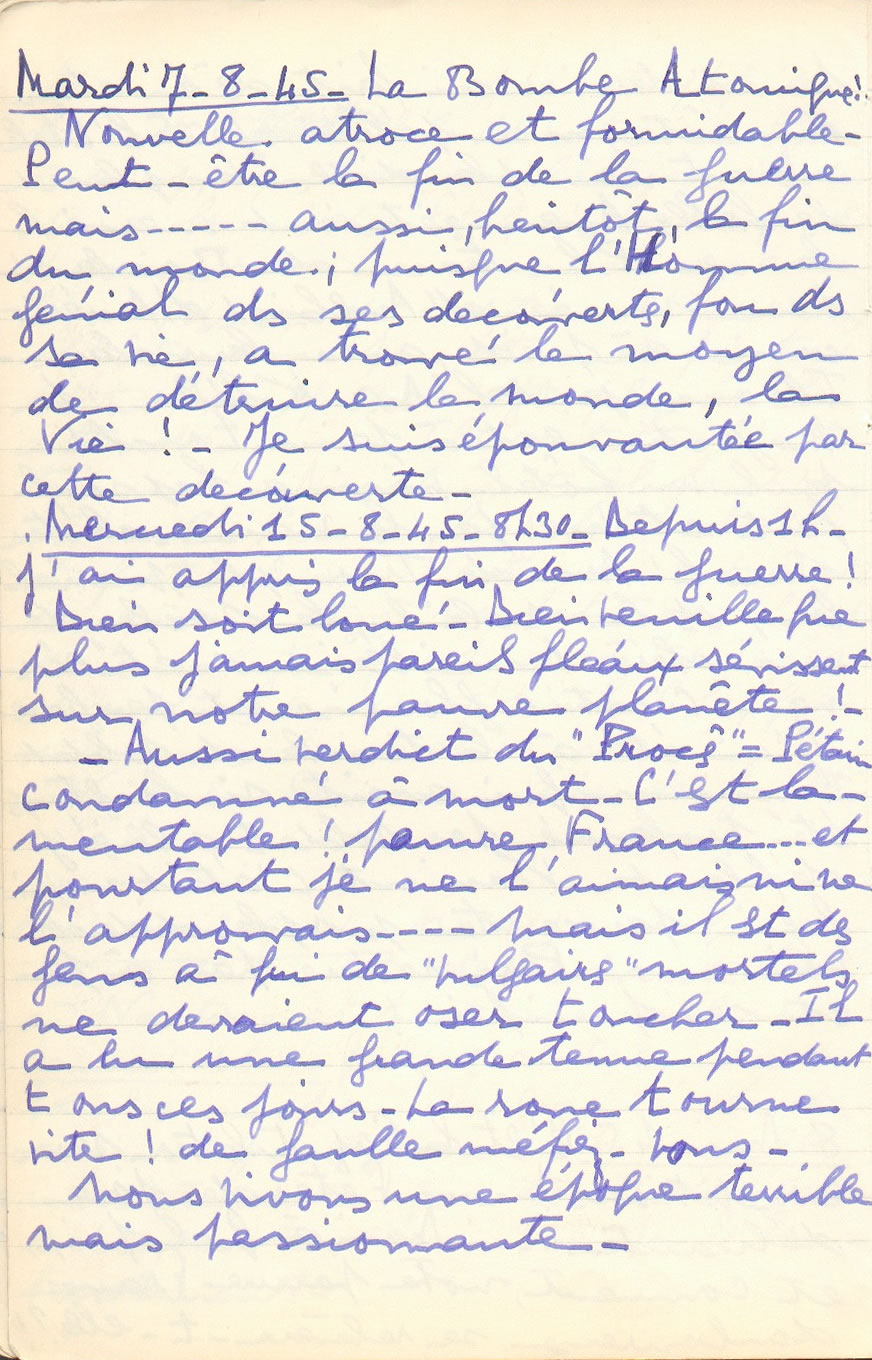 Mardi 7-8-45- La Bombe Atomique!
Nouvelle. atroce et formidable-
Peut-être la fin de la guerre
mais----- aussi, bientôt, la fin
du monde.; puisque l'Homme
génial ds ses decóuverts, fou ds
sa vie, a trouvé le moyen
de détruire le monde, la
Vie ! - Je suis épouvantée par
cette decóuverte-
. Mercredi 15-8-45-8h30- Depuis 1h-
j'ai appris la fin de la guerre !
Dieu soit loué- Dieu veuille que
plus jamais pareils fleáux sévissent
sur notre pauvre planète !-
- Aussi verdict du "Procès" = Pétain
condamné à mort- C'est la-
mentable ! pauvre France...et
pourtant je ne l'aimais ni ne
l'approuvais---- mais il est des
gens à qui de "vulgaires" mortels
ne devraient oser toucher - Il
a eu une grande tenue pendant
tous ces jours- La roue tourne
vite ! de Gaulle méfiez-vous-
Nous vivons une époque terrible
mais passionnante-